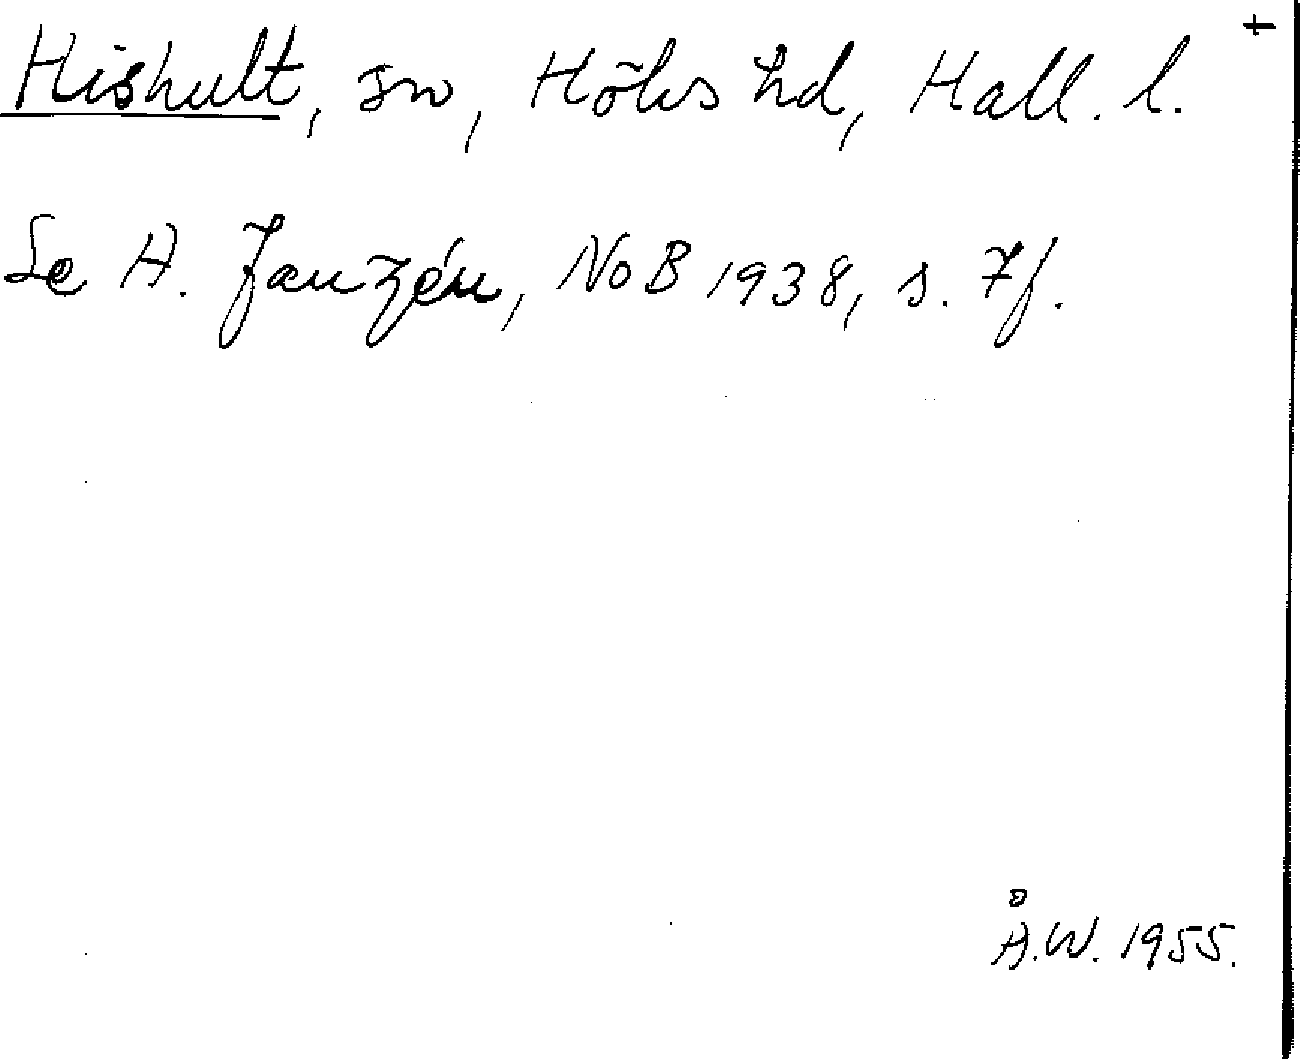 +
Hishult, sn, Höks hd, Hall. l.
Se A. Janzén, NoB 1938, s. 7f.
Å.W. 1955.